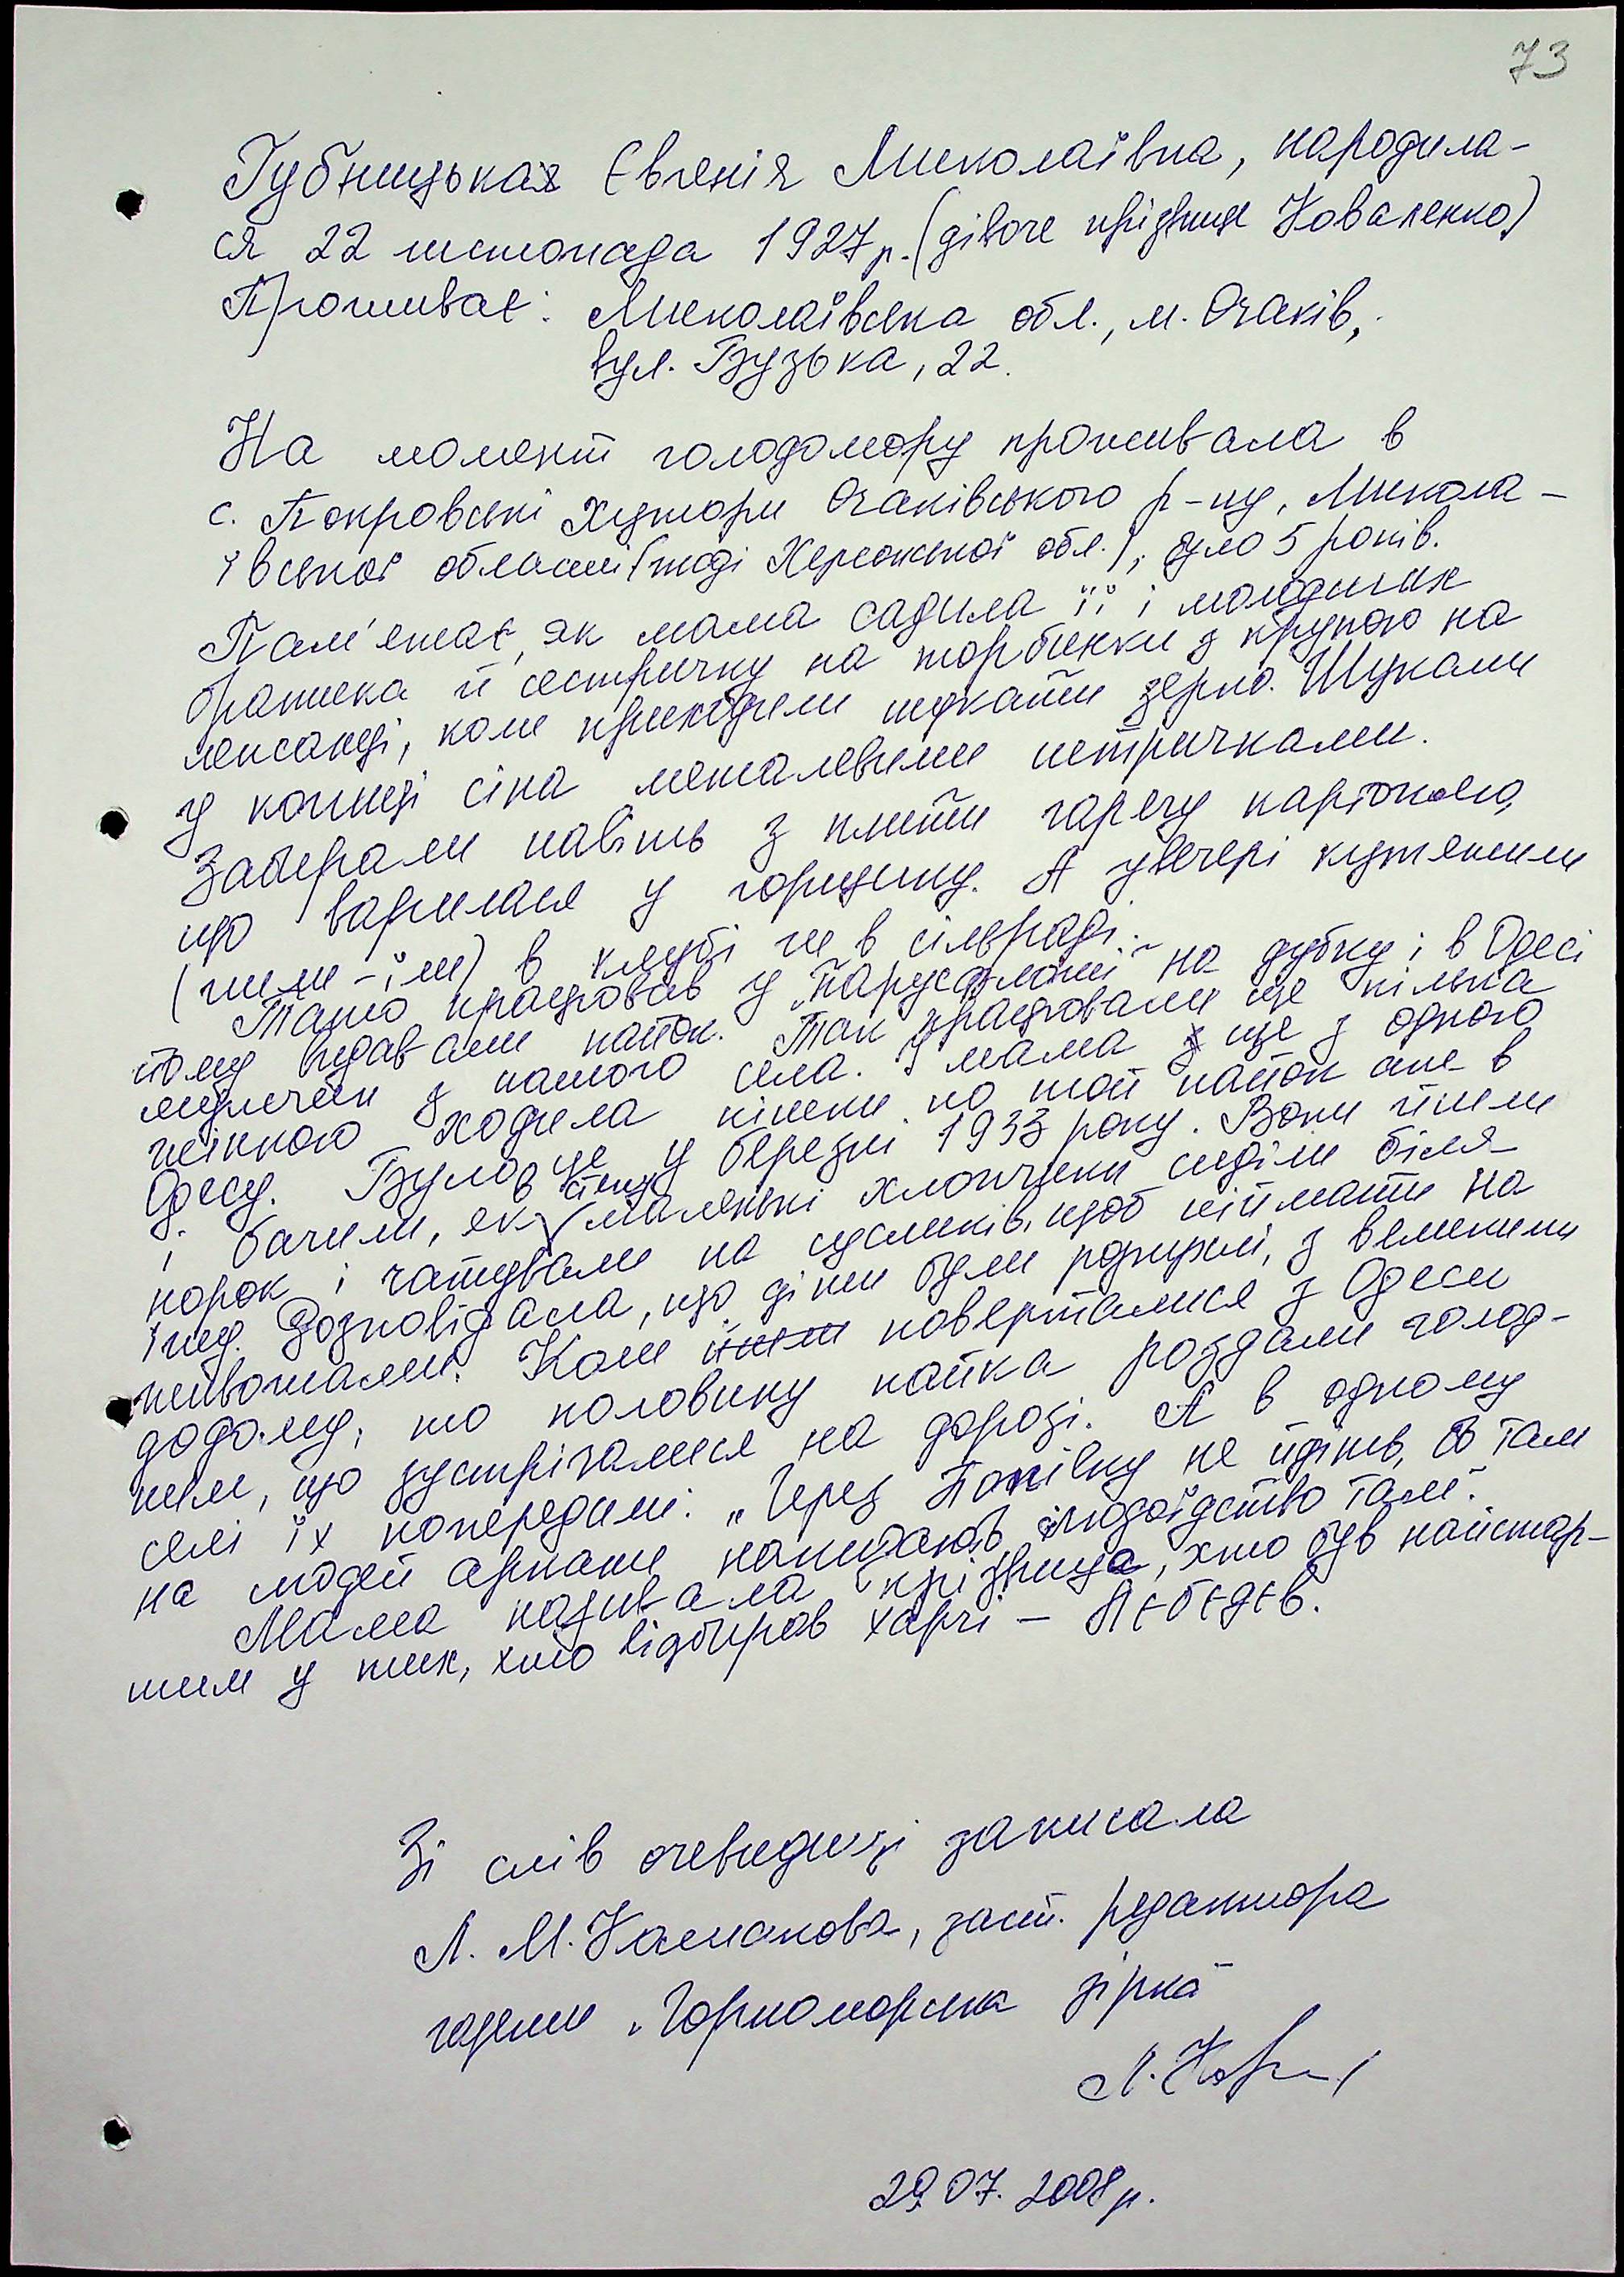 73
Губницька Євгенія Миколаївна, народила-
ся 22 листопада 1927 р. (дівоче прізвище Коваленко)
Проживає: Миколаївська обл., м. Очаків,
вул. Бузька, 22.
На момент голодомору проживала в
с. Покровські Хутори Очаківського р-ну, Микола-
ївської області (тоді Херсонської обл.), було 5 років.
Пам'ятає, як мама садила її і молодших
братика й сестричку на торбинки з крупою на
лежанці, коли приходили шукати зерно. Шукали
у копиці сіна металевими штричками.
Забирали навіть з плити гарячу картоплю,
що варилася у горщику. А увечері кутякили
(пили-їли) в клубі чи в сільраді.
Тато працював у "Парусфлоті" на дубку і в Одесі
йому видавали пайок. Так працювали ще кілька
мужчин з нашого села. І мама ще з одного
жінкою ходила пішки по той пайок аж в
Одесу. Було це у березні 1933 року. Вони йшли
і бачили, як в степу маленькі хлопчики сиділи біля
норок і чатували на сусликів, щоб піймати на
їжу. Розповідала, що дітки були розпухлі, з великими
животами. Коли йшли поверталися з Одеси
додому, то половину пайка роздали голод-
ним, що зустрічалися на дорозі. А в одному
селі їх попередили: "Через Попілну не йдіть, бо там
на людей аркани накидають, людоїдство там".
Мама називала прізвища, хто був найстар-
шим у тих, хто відбирав харчі – Лєбєдєв.
Зі слів очевидиці записала
Л. М. Каманова, заст. редактора
газети "Чорноморська зірка"
29.07.2008 р.